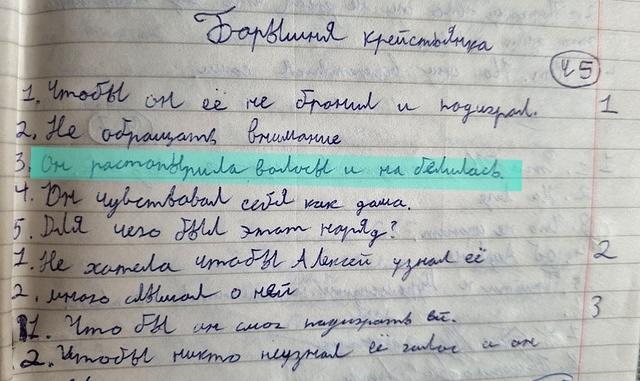 Барышня крейстьянка
45
1. Чтобы он её не бранил и подиграл. 1
2. Не обращать внимание
3. Он растопырила волосы и на белилась
4. Он чувствовал себя как дама.
5. Для чего был этот наряд?
1. Не хотела чтобы Алексей узнал её 2
2. много слышал о ней
1. Что бы он смог подиграть ей. 3
2. Чтобы никто неузнал её голос и он